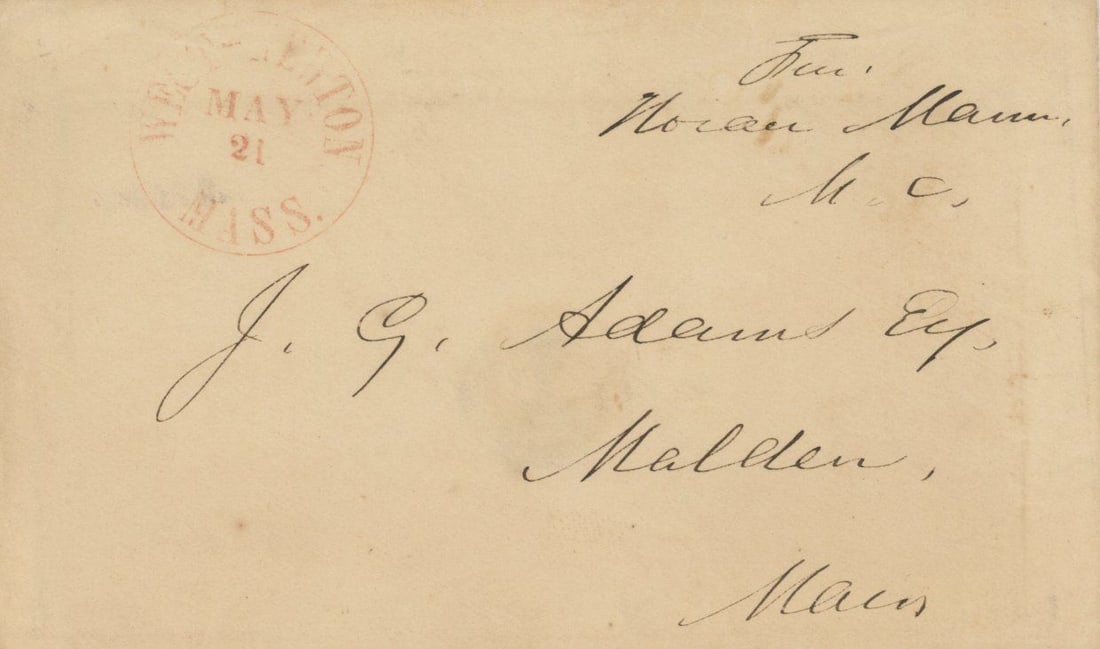 WEST-NEWTON
MAY
21
MASS.
Free.
Horace Mann,
M.C.
J. G. Adams Esq.
Malden,
Mass